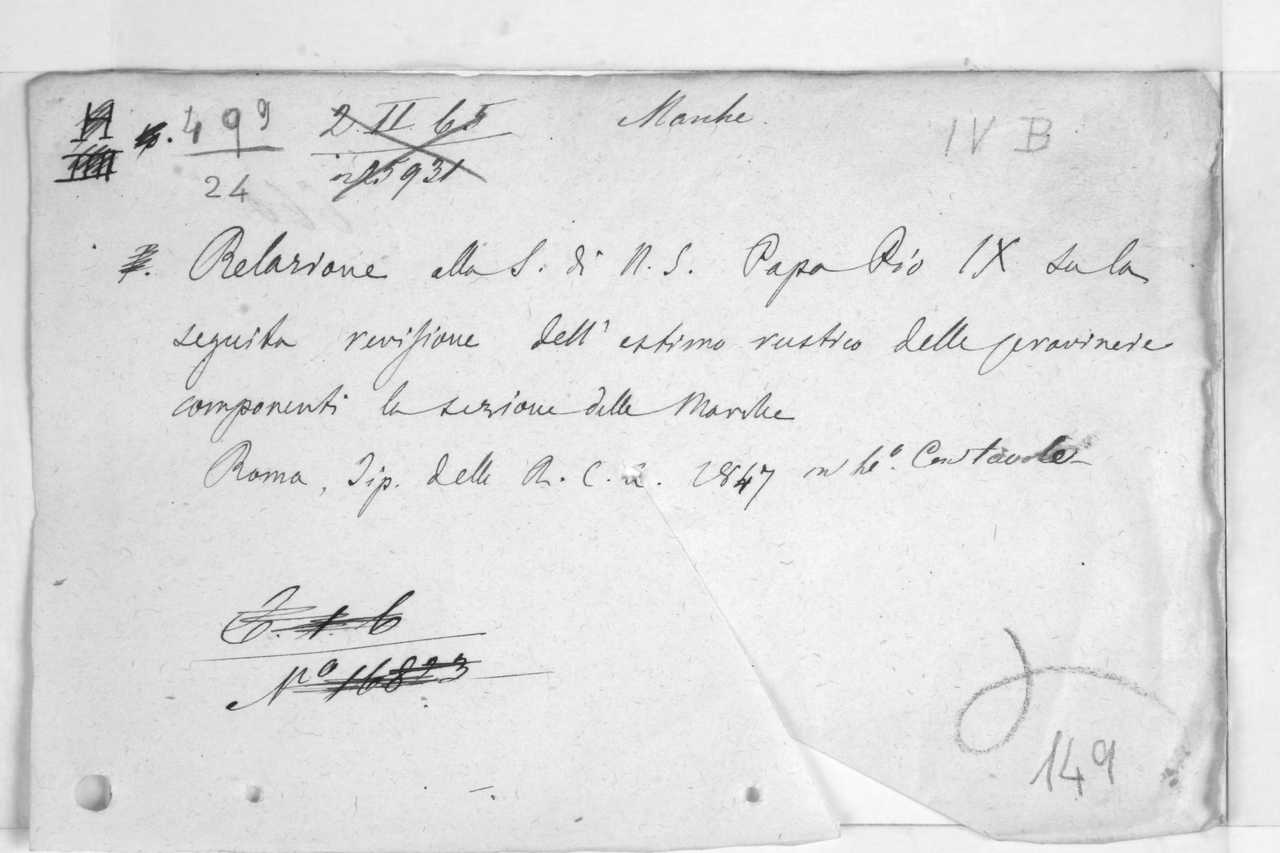 499 2. II. 65 Marche. IV B
24 n. 15931
Relazione alla S. di N. S. Papa Pio IX su la
seguita revisione dell' estimo rustico delle provincie
componenti la sezione delle Marche
Roma, Tip. della R. C. A. 1847 in h.º Con tavole
6. 1. 6
Nº 16823
149